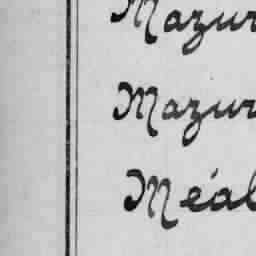 Mazur
Mazur
Méal